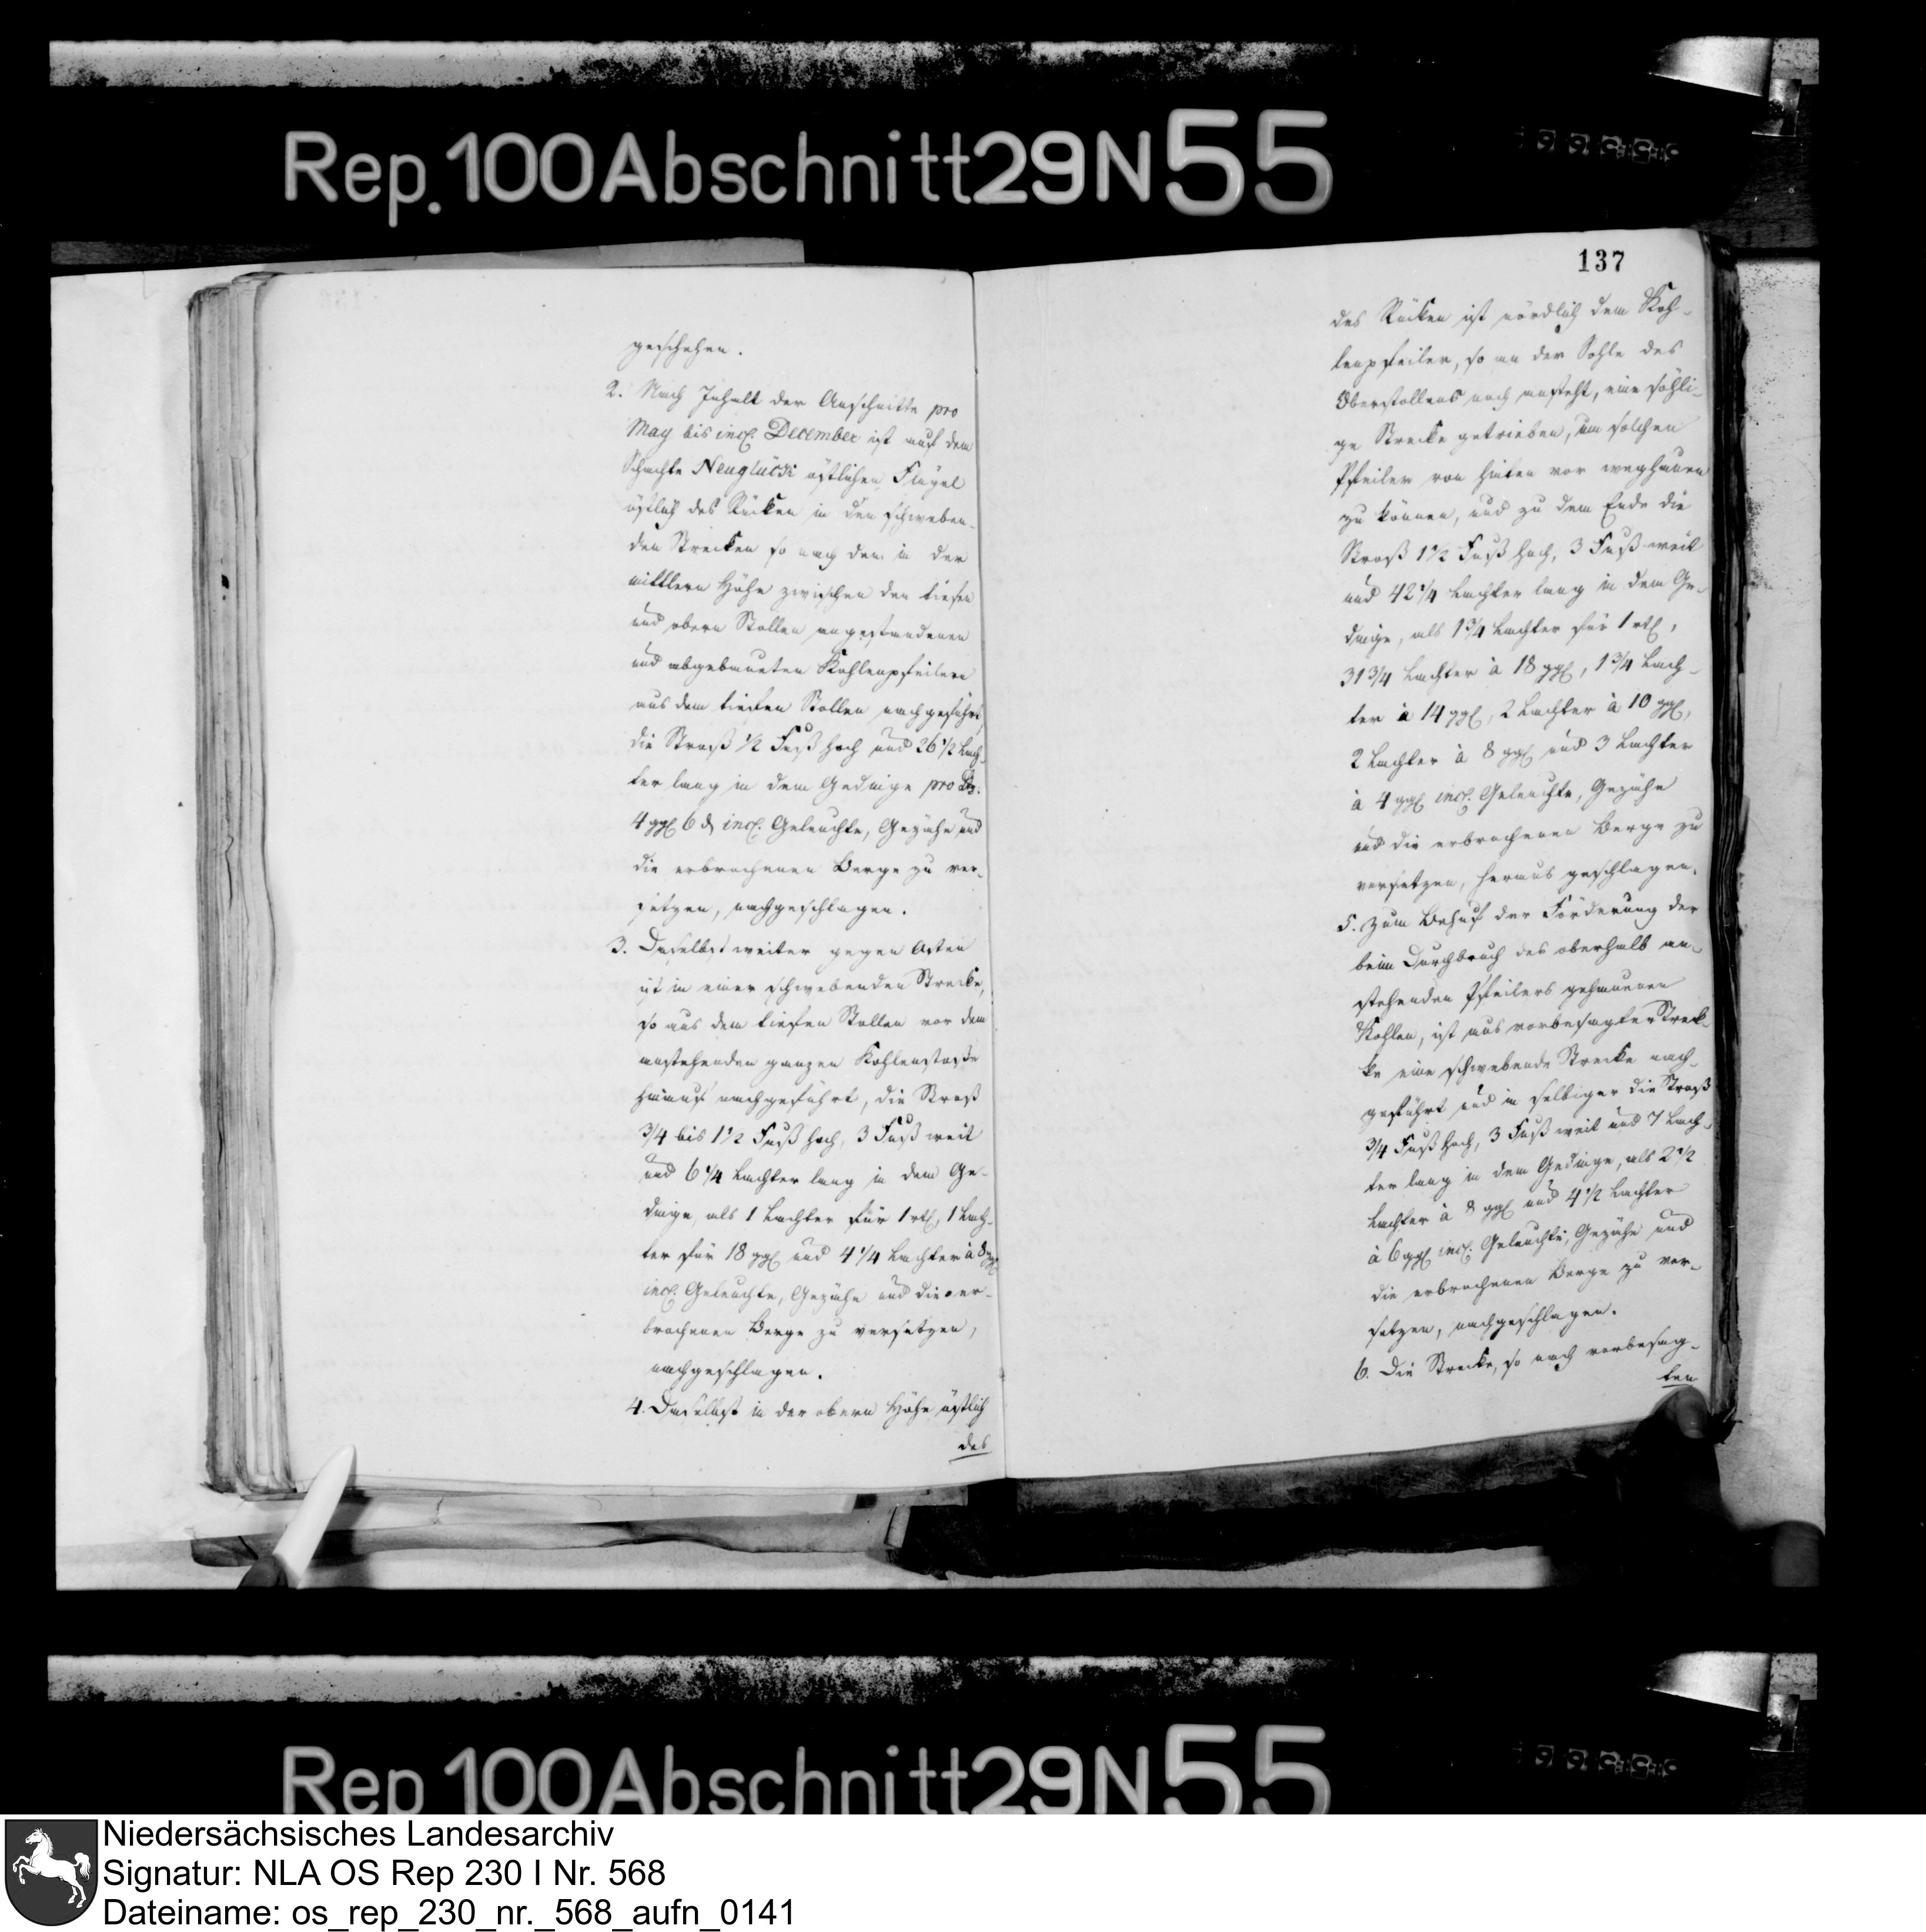 Rep. 100 Abschnitt 29 N 55
geschehen.
2. Nach Inhalt der Anschnitte pro
May bis incl. December ist auf dem
Schachte Neuglück östlichen Flügel
östlich des Rücken in den schweben-
den Strecken so nach den in der
mittlern Höhe zwischen den tiefen
und obern Stollen angestandenen
und abgebaueten Kohlenpfeilern
aus dem tiefen Stollen nachgeführt,
die Stroß 1/2 Fuß hoch und 26 1/2 Lach-
ter lang in dem Gedinge pro Ltr.
4 ggl 6 d incl. Geleuchte, Gezähe und
die erbrochenen Berge zu ver-
setzen, nachgeschlagen.
3. Daselbst weiter gegen Osten
ist in einer schwebenden Strecke,
so aus dem tiefen Stollen vor dem
anstehenden ganzen Kohlenstoße
hinauf nachgeführt, die Stroß
3/4 bis 1 1/2 Fuß hoch, 3 Fuß weit
und 6 1/4 Lachter lang in dem Ge-
dinge, als 1 Lachter für 1 rtl, 1 Lach-
ter für 18 ggl und 4 1/4 Lachter à 8 ggl
incl. Geleuchte, Gezähe und die er-
brochenen Berge zu versetzen,
nachgeschlagen.
4. Daselbst in der obern Höhe östlich
des
137
des Rücken ist nördlich dem Koh-
lenpfeiler, so an der Sohle des
Oberstollens noch ansteht, eine söhli-
ge Strecke getrieben, um solchen
Pfeiler von hinten vor weghauen
zu können, und zu dem Ende die
Stroß 1 1/2 Fuß hoch, 3 Fuß weit
und 42 1/4 Lachter lang in dem Ge-
dinge, als 1 3/4 Lachter für 1 rtl,
31 3/4 Lachter à 18 ggl, 1 3/4 Lach-
ter à 14 ggl, 2 Lachter à 10 ggl,
2 Lachter à 8 ggl und 3 Lachter
à 4 ggl incl. Geleuchte, Gezähe
und die erbrochenen Berge zu
versetzen, heraus geschlagen.
5. Zum Behuf der Förderung der
beim Durchbruch des oberhalb an-
stehenden Pfeilers gehauenen
Kohlen, ist aus vorbesagter Strek-
ke eine schwebende Strecke nach-
geführt und in selbiger die Stroß
3/4 Fuß hoch, 3 Fuß weit und 7 Lach-
ter lang in dem Gedinge, als 2 1/2
Lachter à 8 ggl und 4 1/2 Lachter
à 6 ggl incl. Geleuchte, Gezähe und
die erbrochenen Berge zu ver-
setzen, nachgeschlagen.
6. Die Strecke, so nach vorbesag-
ten
Rep 100 Abschnitt 29 N 55
Niedersächsisches Landesarchiv
Signatur: NLA OS Rep 230 I Nr. 568
Dateiname: os_rep_230_nr._568_aufn_0141